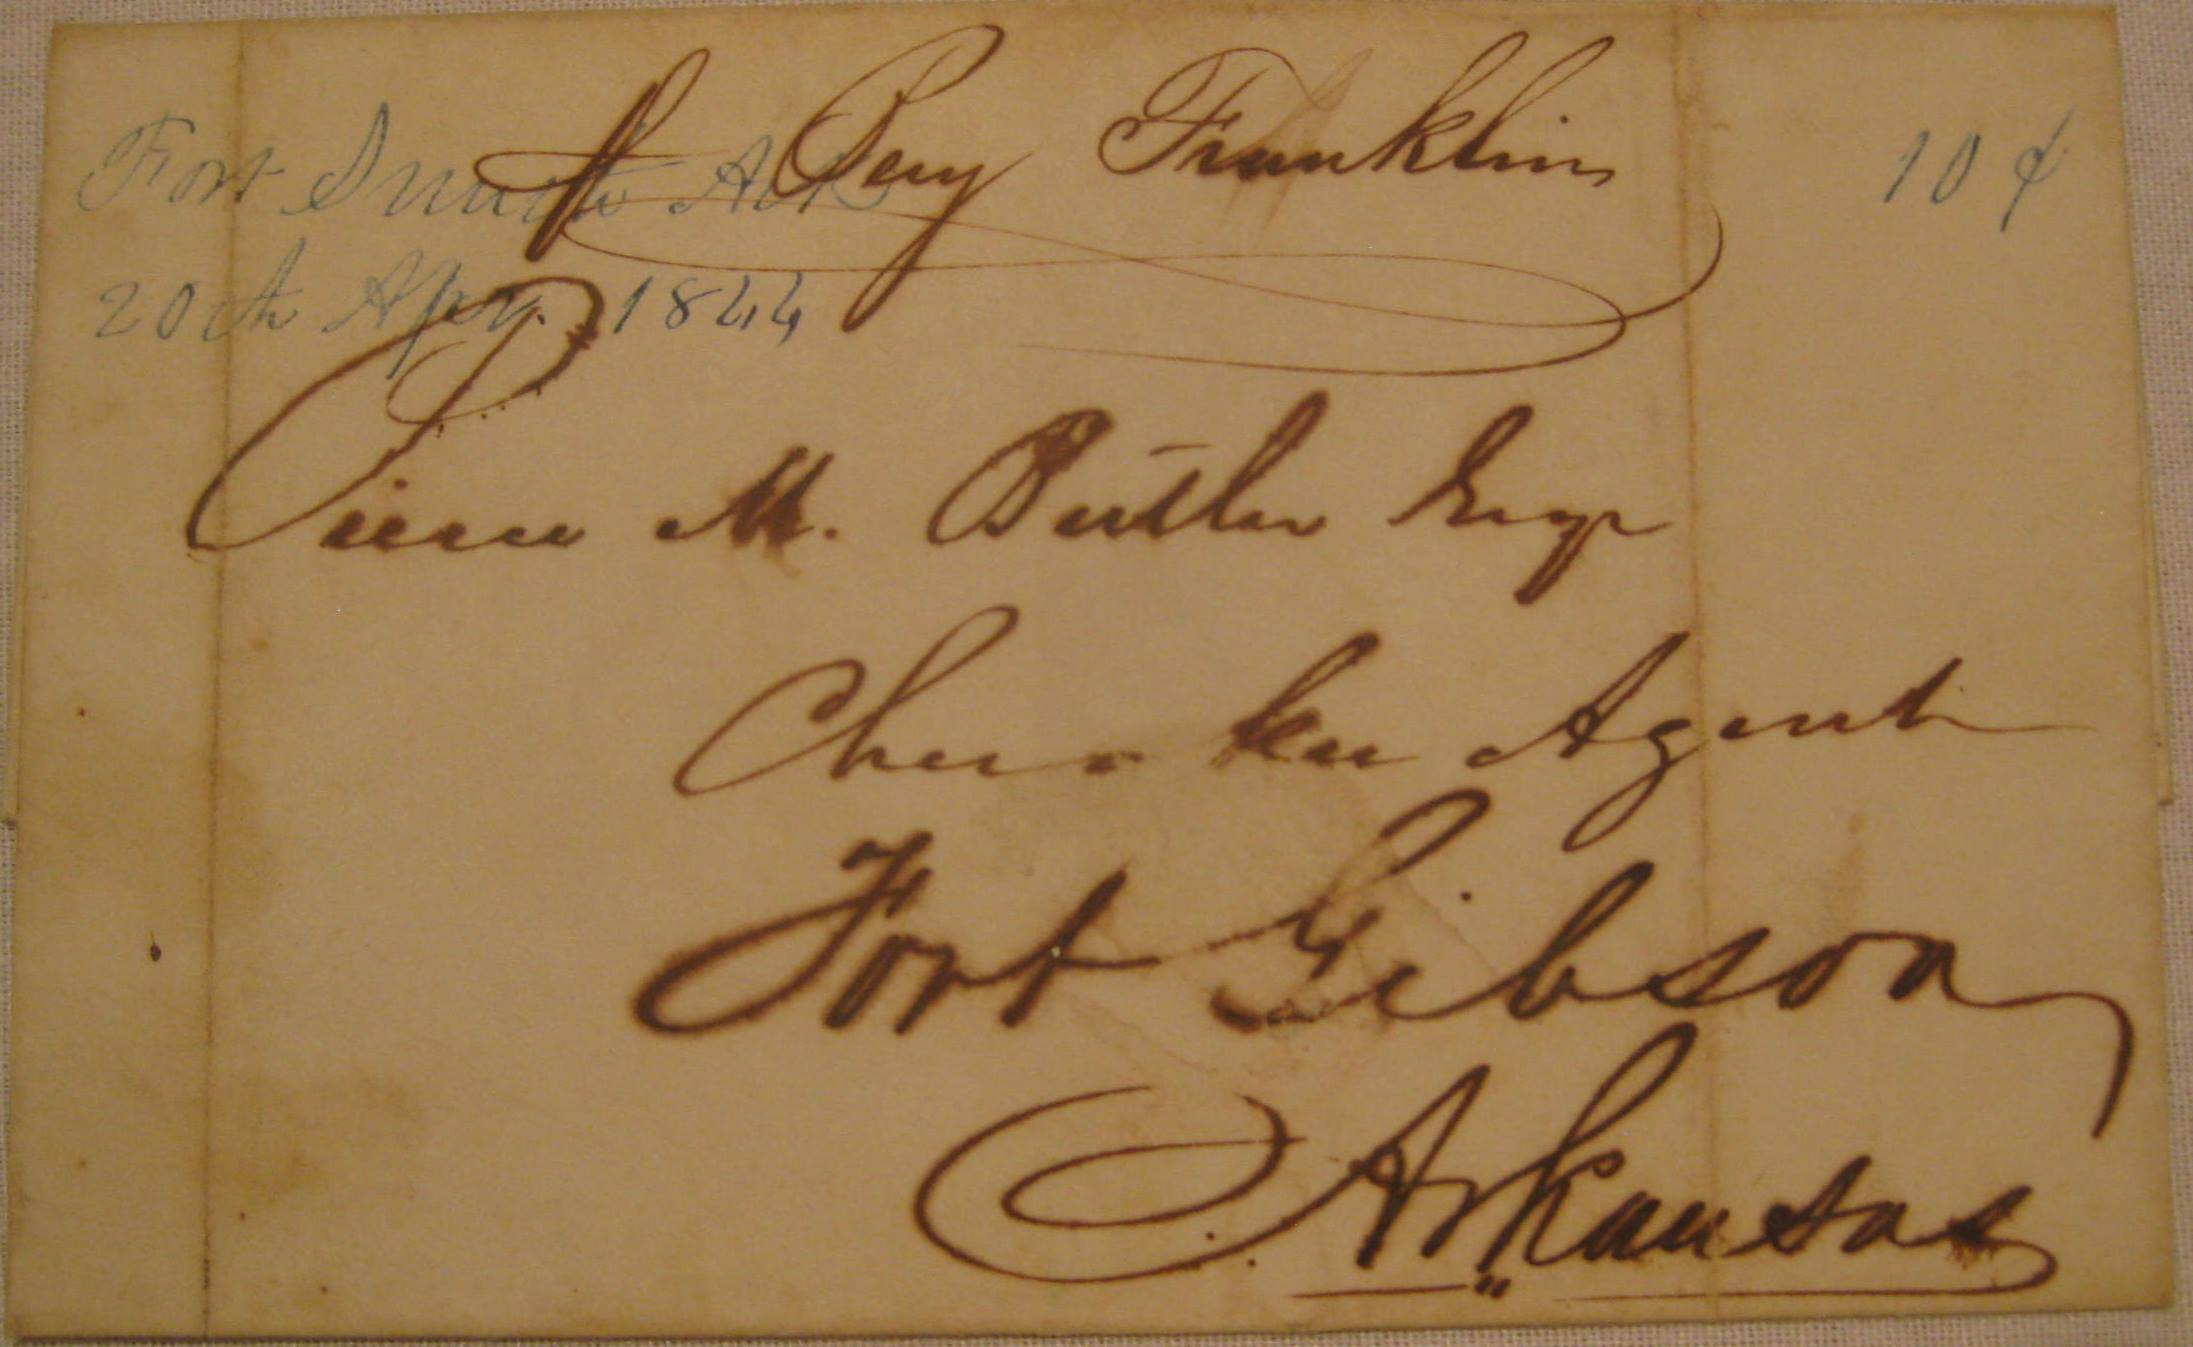 Pr Benj Franklin
Fort Smith Ark
10 ¢
20th Apr. 1844
Pierce M. Butler Esqr
Cherokee Agent
Fort Gibson
Arkansas